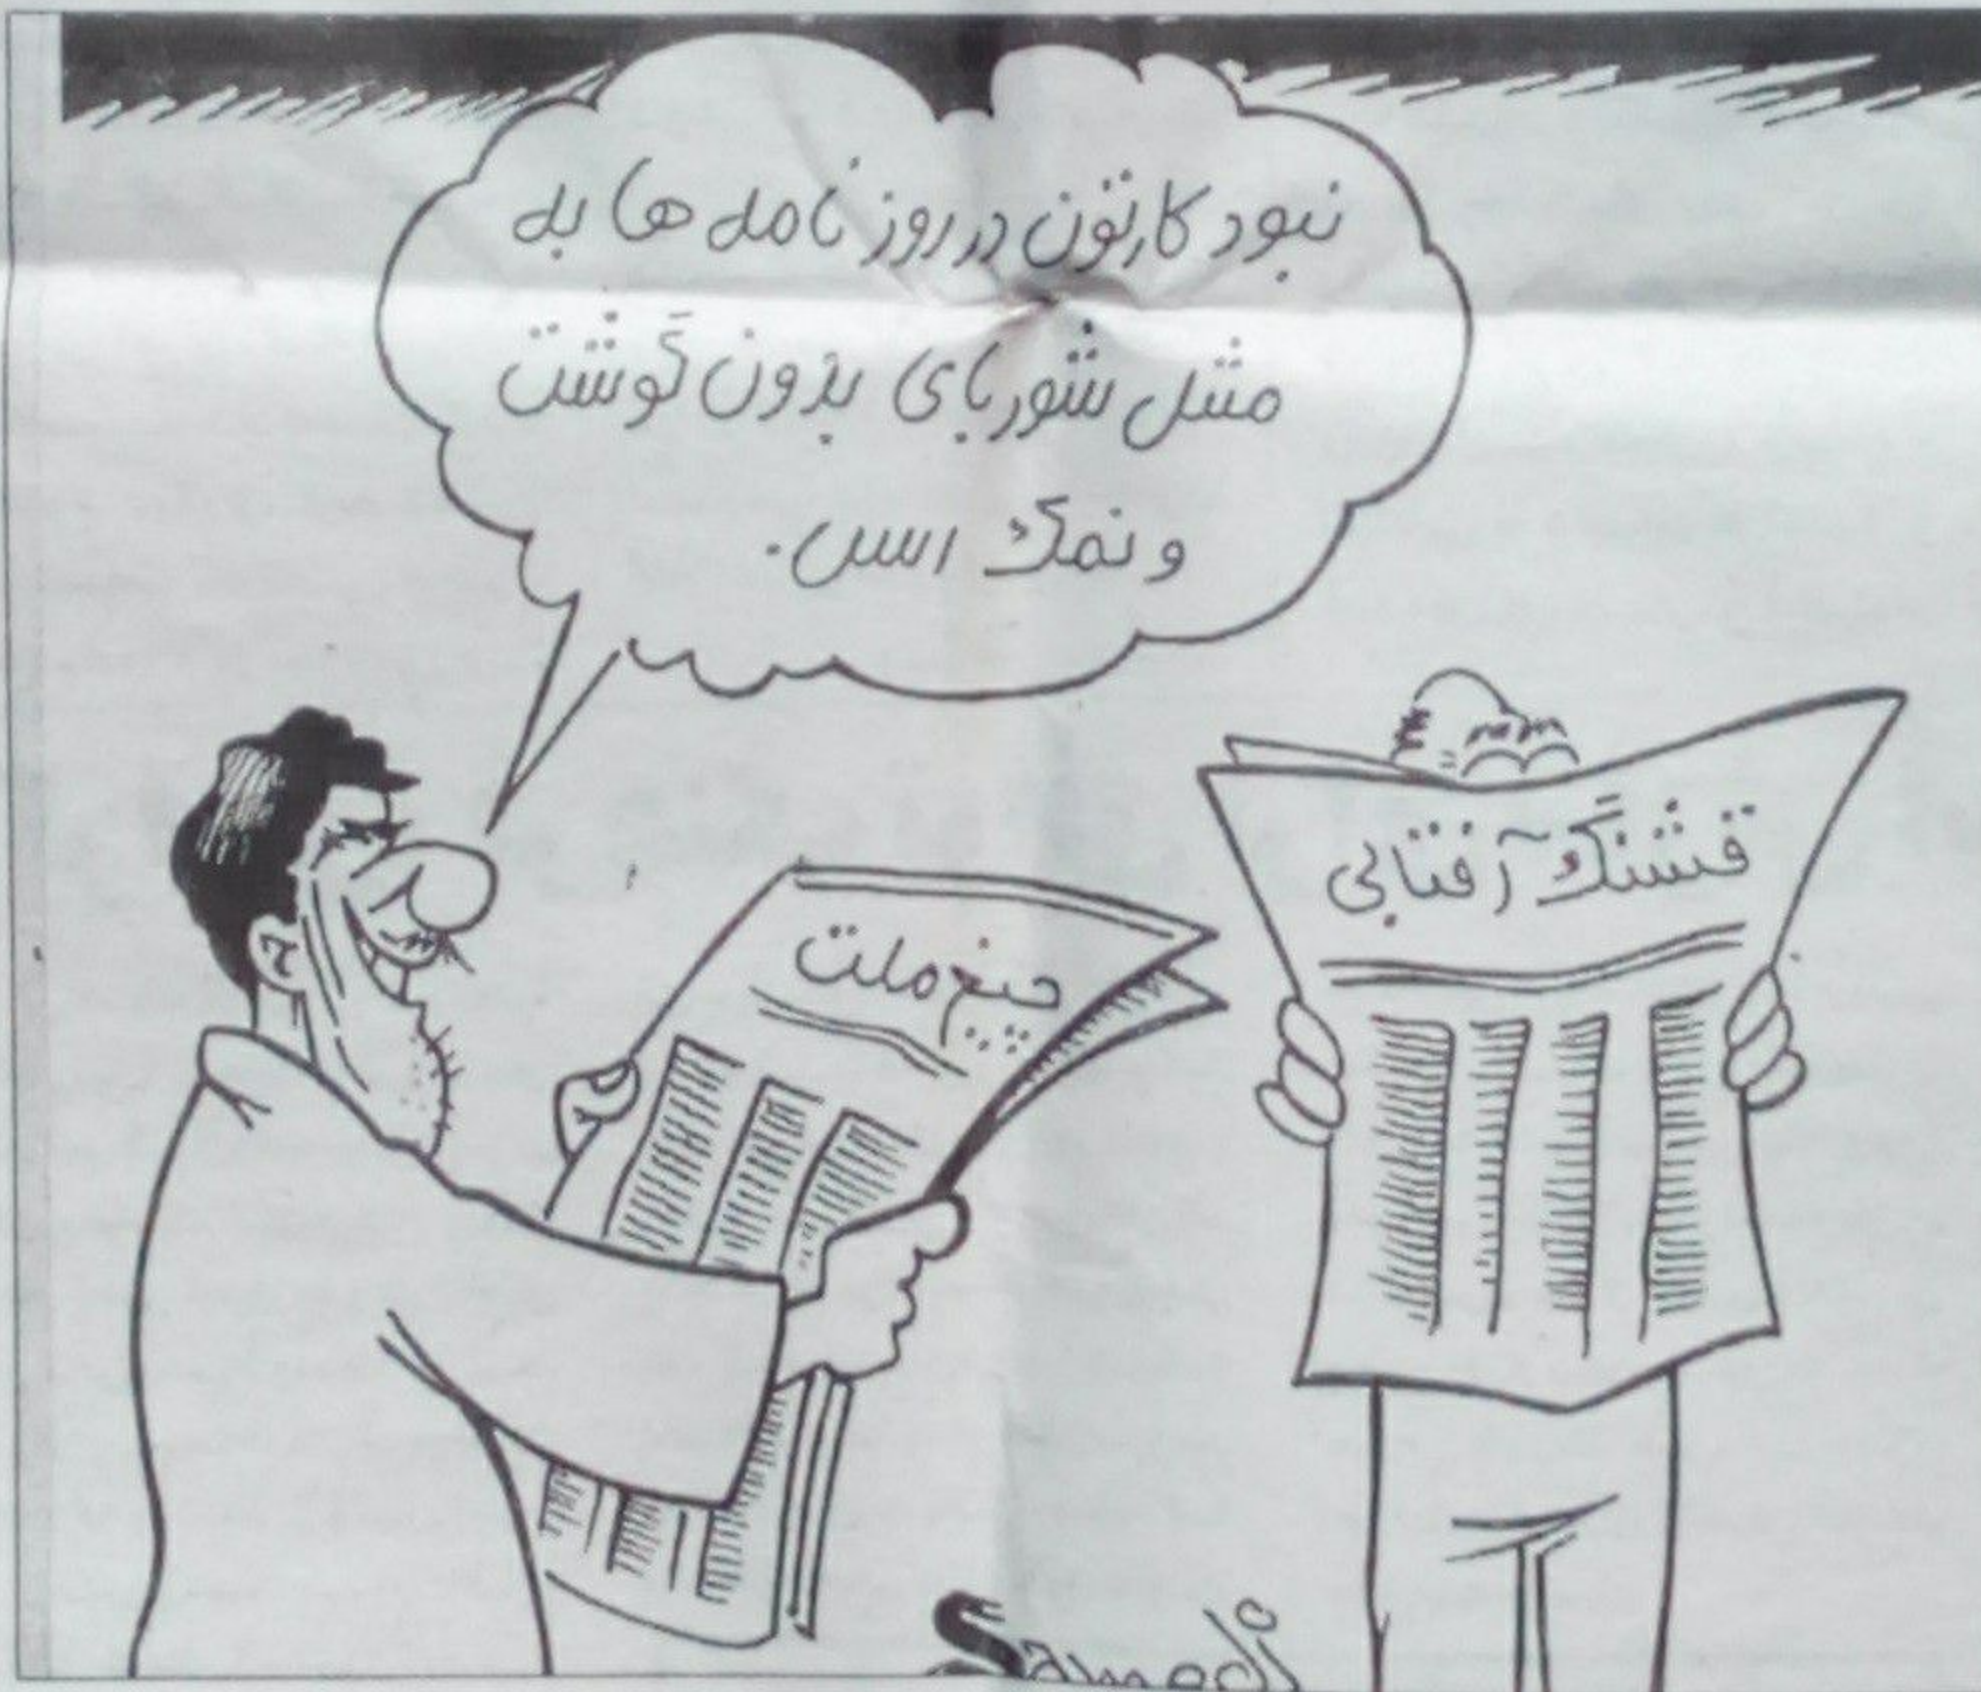 نبود کارتون در روزنامه ها به
مثل شوربای بدون گوشت
و نمک اس.
چیغ ملت
قشنگ آفتابی
Samedi